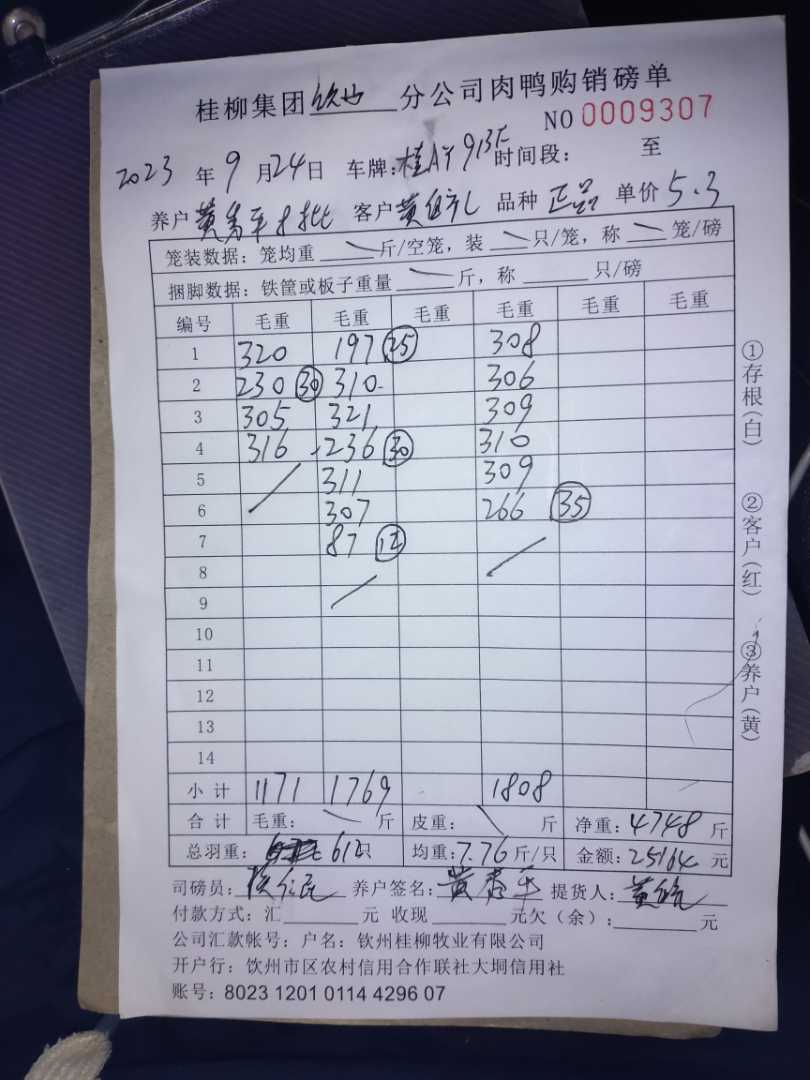 桂柳集团 钦州 分公司肉鸭购销磅单
NO 0009307
2023 年 9 月 24 日 车牌: 桂A 913F 时间段: 至
养户 黄 平 批 客户 黄 品种 正品 单价 5.3
笼装数据: 笼均重 斤/空笼, 装 只/笼, 称 笼/磅
捆脚数据: 铁筐或板子重量 斤, 称 只/磅
编号 毛重 毛重 毛重 毛重 毛重 毛重
1 320 197 25 308
2 230 30 310 306
3 305 321 309
4 316 236 30 310
5 311 309
6 307 266 35
7 87 12
8
9
10
11
12
13
14
小计 1171 1769 1808
合计 毛重: 斤 皮重: 斤 净重: 4748 斤
总羽重: 612只 均重: 7.76 斤/只 金额: 25164 元
司磅员: 养户签名: 黄 平 提货人: 黄
付款方式: 汇 元 收现 元欠(余): 元
公司汇款帐号: 户名: 钦州桂柳牧业有限公司
开户行: 钦州市区农村信用合作联社大垌信用社
账号: 8023 1201 0114 4296 07
①存根(白) ②客户(红) ③养户(黄)